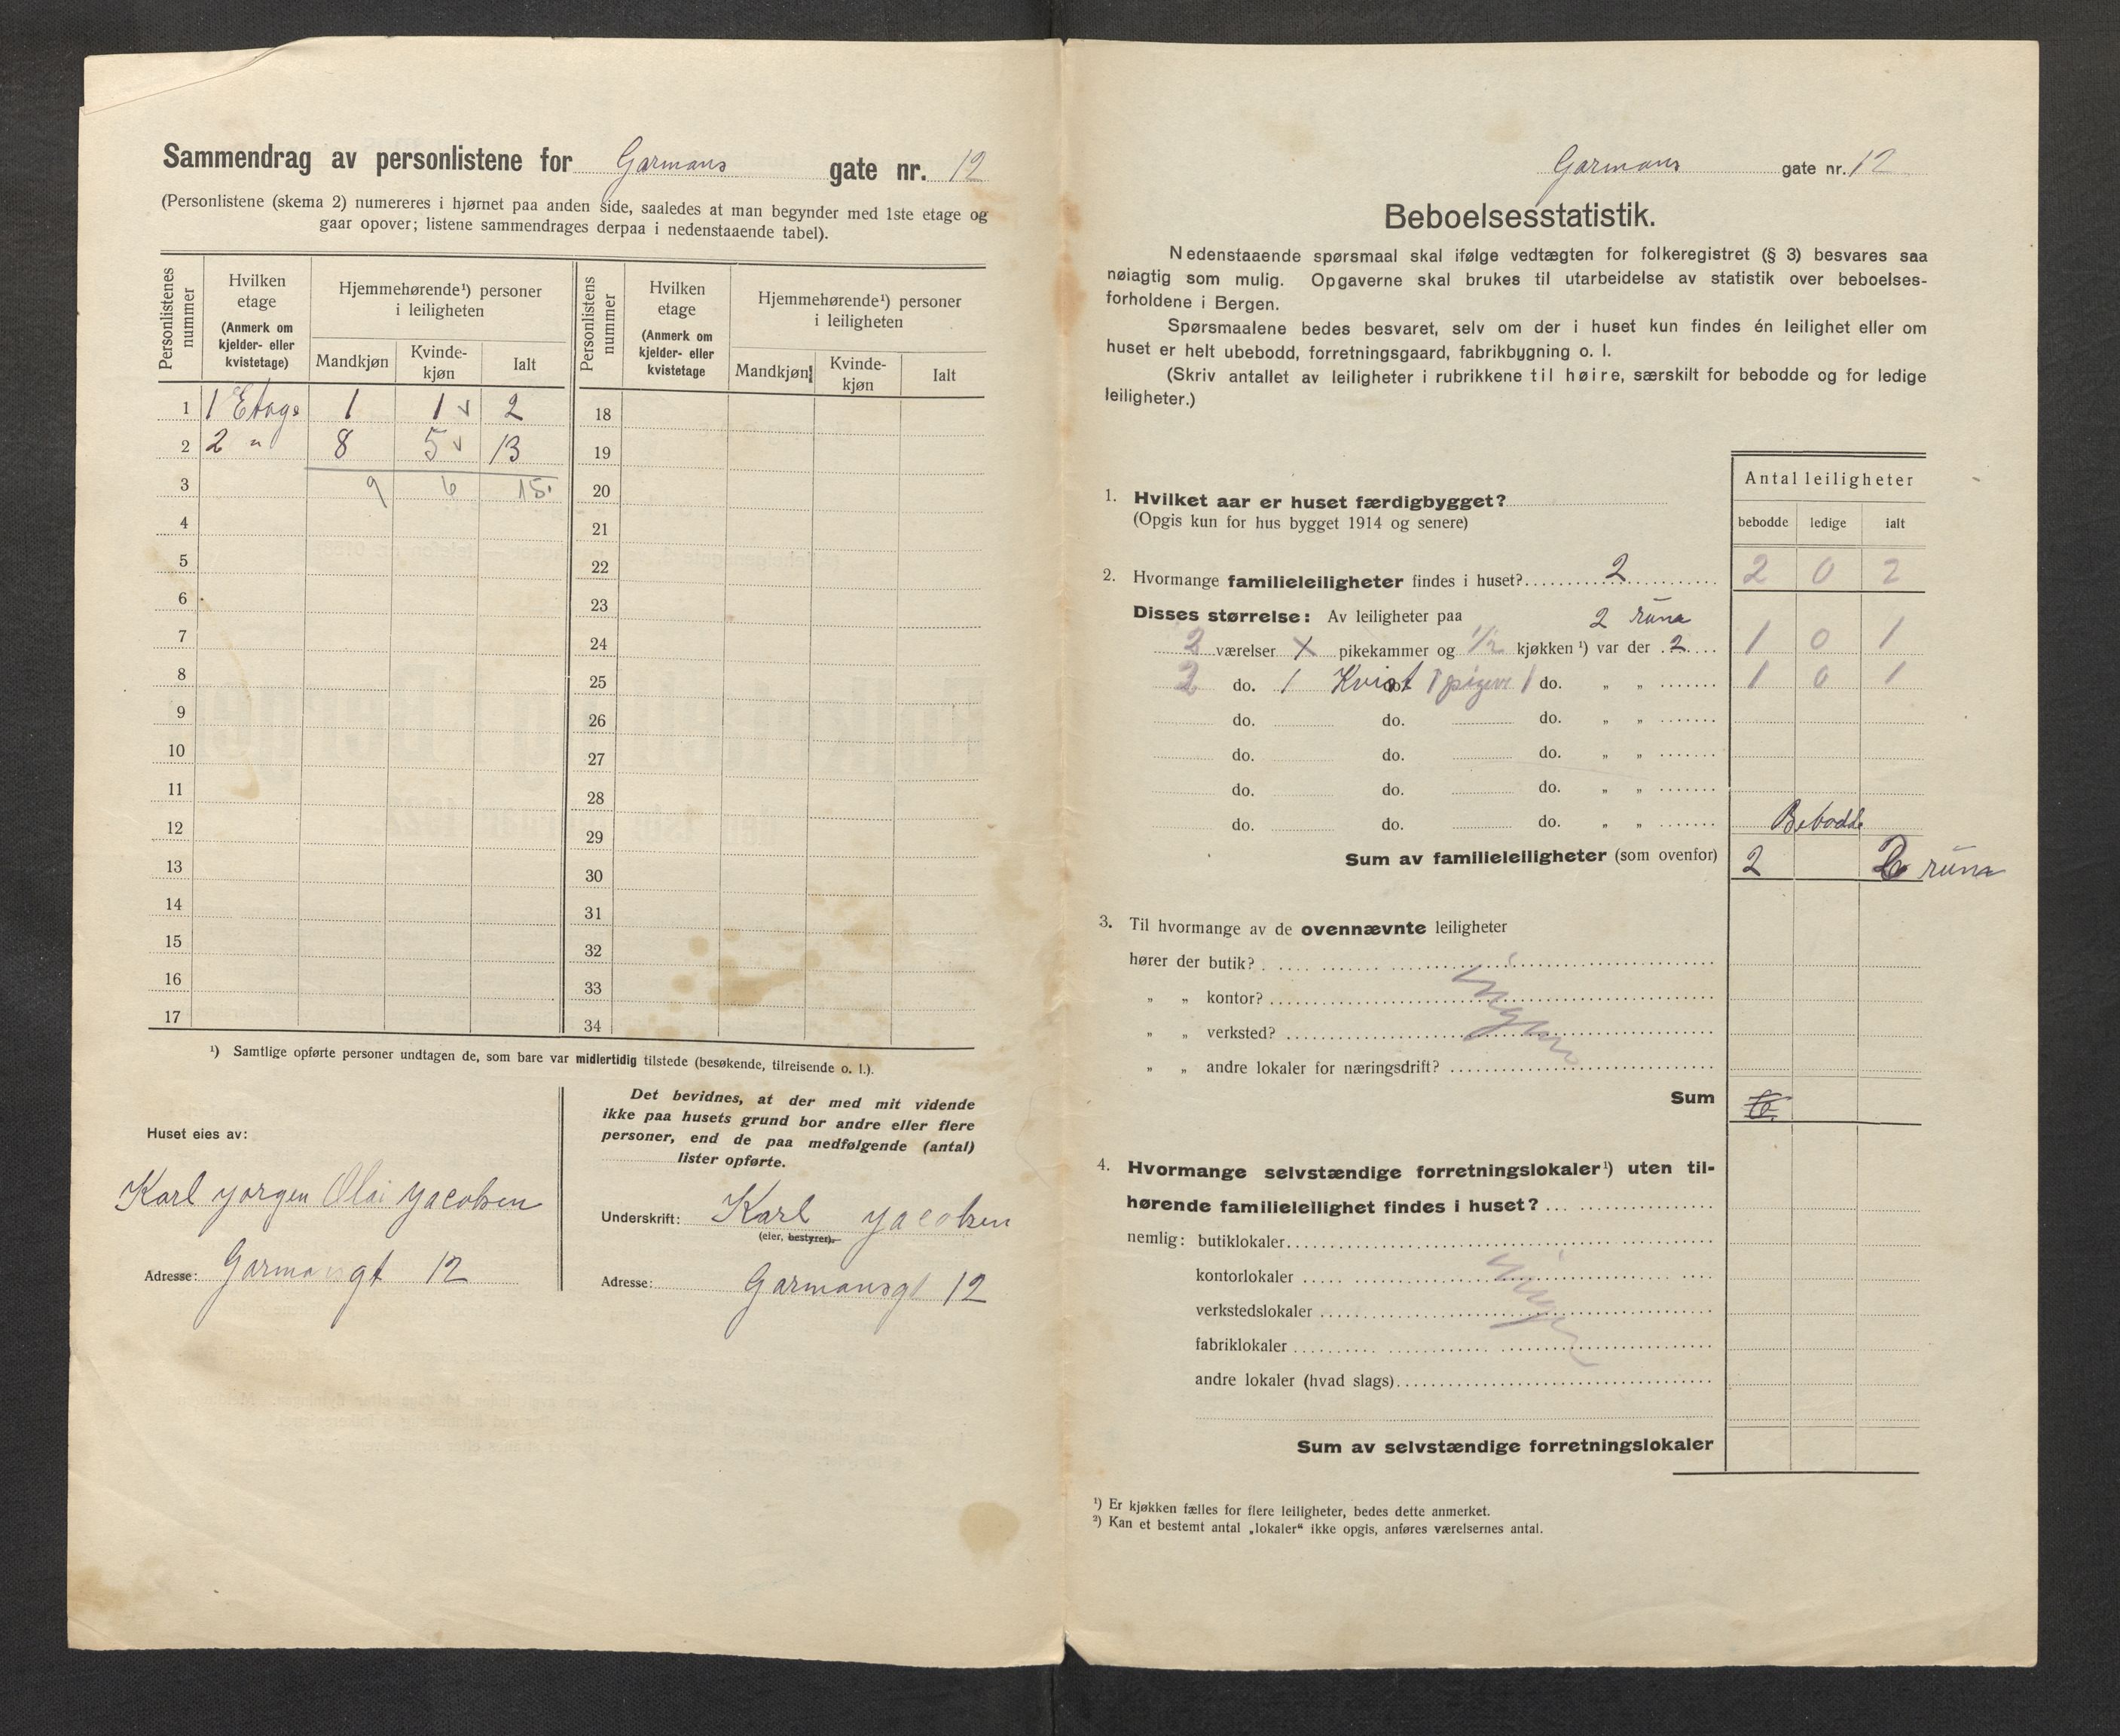 Sammendrag av personlistene for Garmans gate nr. 12
(Personlistene (skema 2) numereres i hjørnet paa anden side, saaledes at man begynder med 1ste etage og
gaar opover; listene sammendrages derpaa i nedenstaaende tabel).
Personlistenes nummer
Hvilken etage
(Anmerk om kjelder- eller kvistetage)
Hjemmehørende¹) personer i leiligheten
Mandkjøn Kvinde-kjøn Ialt
Personlistens nummer
Hvilken etage
(Anmerk om kjelder- eller kvistetage
Hjemmehørende¹) personer i leiligheten
Mandkjøn Kvinde-kjøn Ialt
1 1 Etage 1 1 ✓ 2 18
2 2 " 8 5 ✓ 13 19
3 9 6 15. 20
4 21
5 22
6 23
7 24
8 25
9 26
10 27
11 28
12 29
13 30
14 31
15 32
16 33
17 34
¹) Samtlige opførte personer undtagen de, som bare var midlertidig tilstede (besøkende, tilreisende o. l.).
Huset eies av:
Karl Jørgen Olai Jacobsen
Adresse: Garmansgt 12
Det bevidnes, at der med mit vidende
ikke paa husets grund bor andre eller flere
personer, end de paa medfølgende (antal)
lister opførte.
Underskrift: Karl Jacobsen
(eier, bestyrer).
Adresse: Garmansgt 12
Garmans gate nr. 12
Beboelsesstatistik.
Nedenstaaende spørsmaal skal ifølge vedtægten for folkeregistret (§ 3) besvares saa
nøiagtig som mulig. Opgaverne skal brukes til utarbeidelse av statistik over beboelses-
forholdene i Bergen.
Spørsmaalene bedes besvaret, selv om der i huset kun findes én leilighet eller om
huset er helt ubebodd, forretningsgaard, fabrikbygning o. l.
(Skriv antallet av leiligheter i rubrikkene til høire, særskilt for bebodde og for ledige
leiligheter.)
Antal leiligheter
bebodde ledige ialt
1. Hvilket aar er huset færdigbygget?
(Opgis kun for hus bygget 1914 og senere)
2. Hvormange familieleiligheter findes i huset? 2 2 0 2
Disses størrelse: Av leiligheter paa 2
2 værelser X pikekammer og 1/2 kjøkken¹) var der 2 1 0 1
2 do. 1 Kvist do. 1 do. „ „ 1 0 1
do. do. do. „ „
do. do. do. „ „
do. do. do. „ „
do. do. do. „ „ Bebodde
Sum av familieleiligheter (som ovenfor) 2
3. Til hvormange av de ovennævnte leiligheter
hører der butik?
„ „ kontor? ingen
„ „ verksted?
„ „ andre lokaler for næringsdrift?
Sum
4. Hvormange selvstændige forretningslokaler¹) uten til-
hørende familieleilighet findes i huset?
nemlig: butiklokaler
kontorlokaler ingen
verkstedslokaler
fabriklokaler
andre lokaler (hvad slags)
Sum av selvstændige forretningslokaler
¹) Er kjøkken fælles for flere leiligheter, bedes dette anmerket.
²) Kan et bestemt antal „lokaler“ ikke opgis, anføres værelsernes antal.